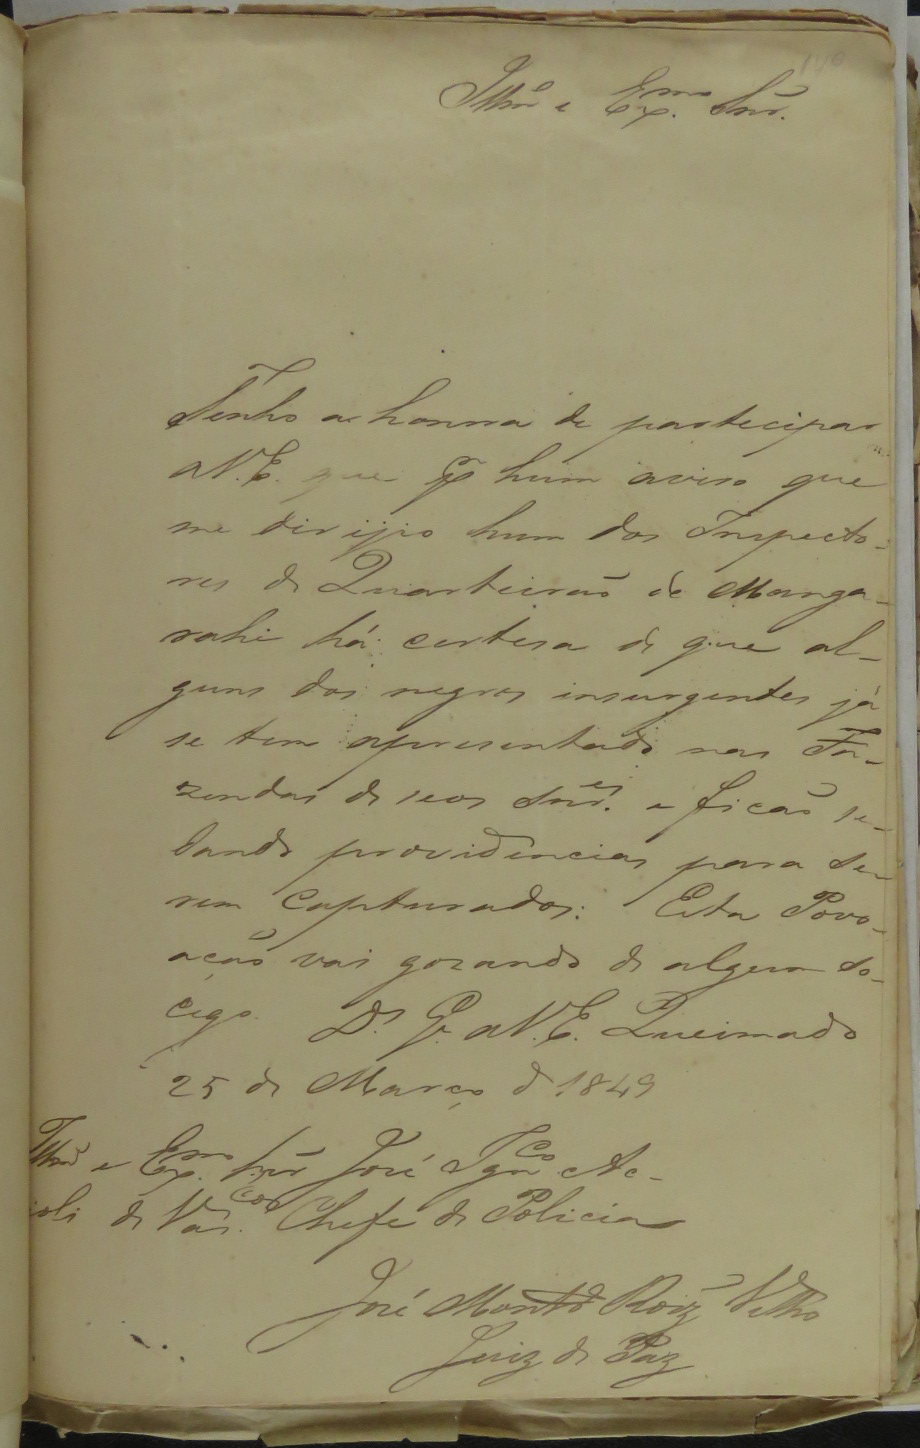 Illmº e Exmº Snr.
Tenho a honra de partecipar
a V. E. que p hum aviso que
me dirijio hum dos Inspecto-
res de Quarteirão de Manga-
rahi há certesa de que al-
guns dos negros insurgentes já
se tem apresentado nas Fa-
zendas de seos Snres. e ficão se
dando providências para se-
rem capturados: Esta Povo-
ação vai gozando de algum so-
cego. Ds. Ge. a V. E. Queimado
25 de Março de 1849
Illmº e Exmº Snr José Ignco Ac-
cioli de Vascos. Chefe de Policia
José Roiz Velho
Juiz de Paz